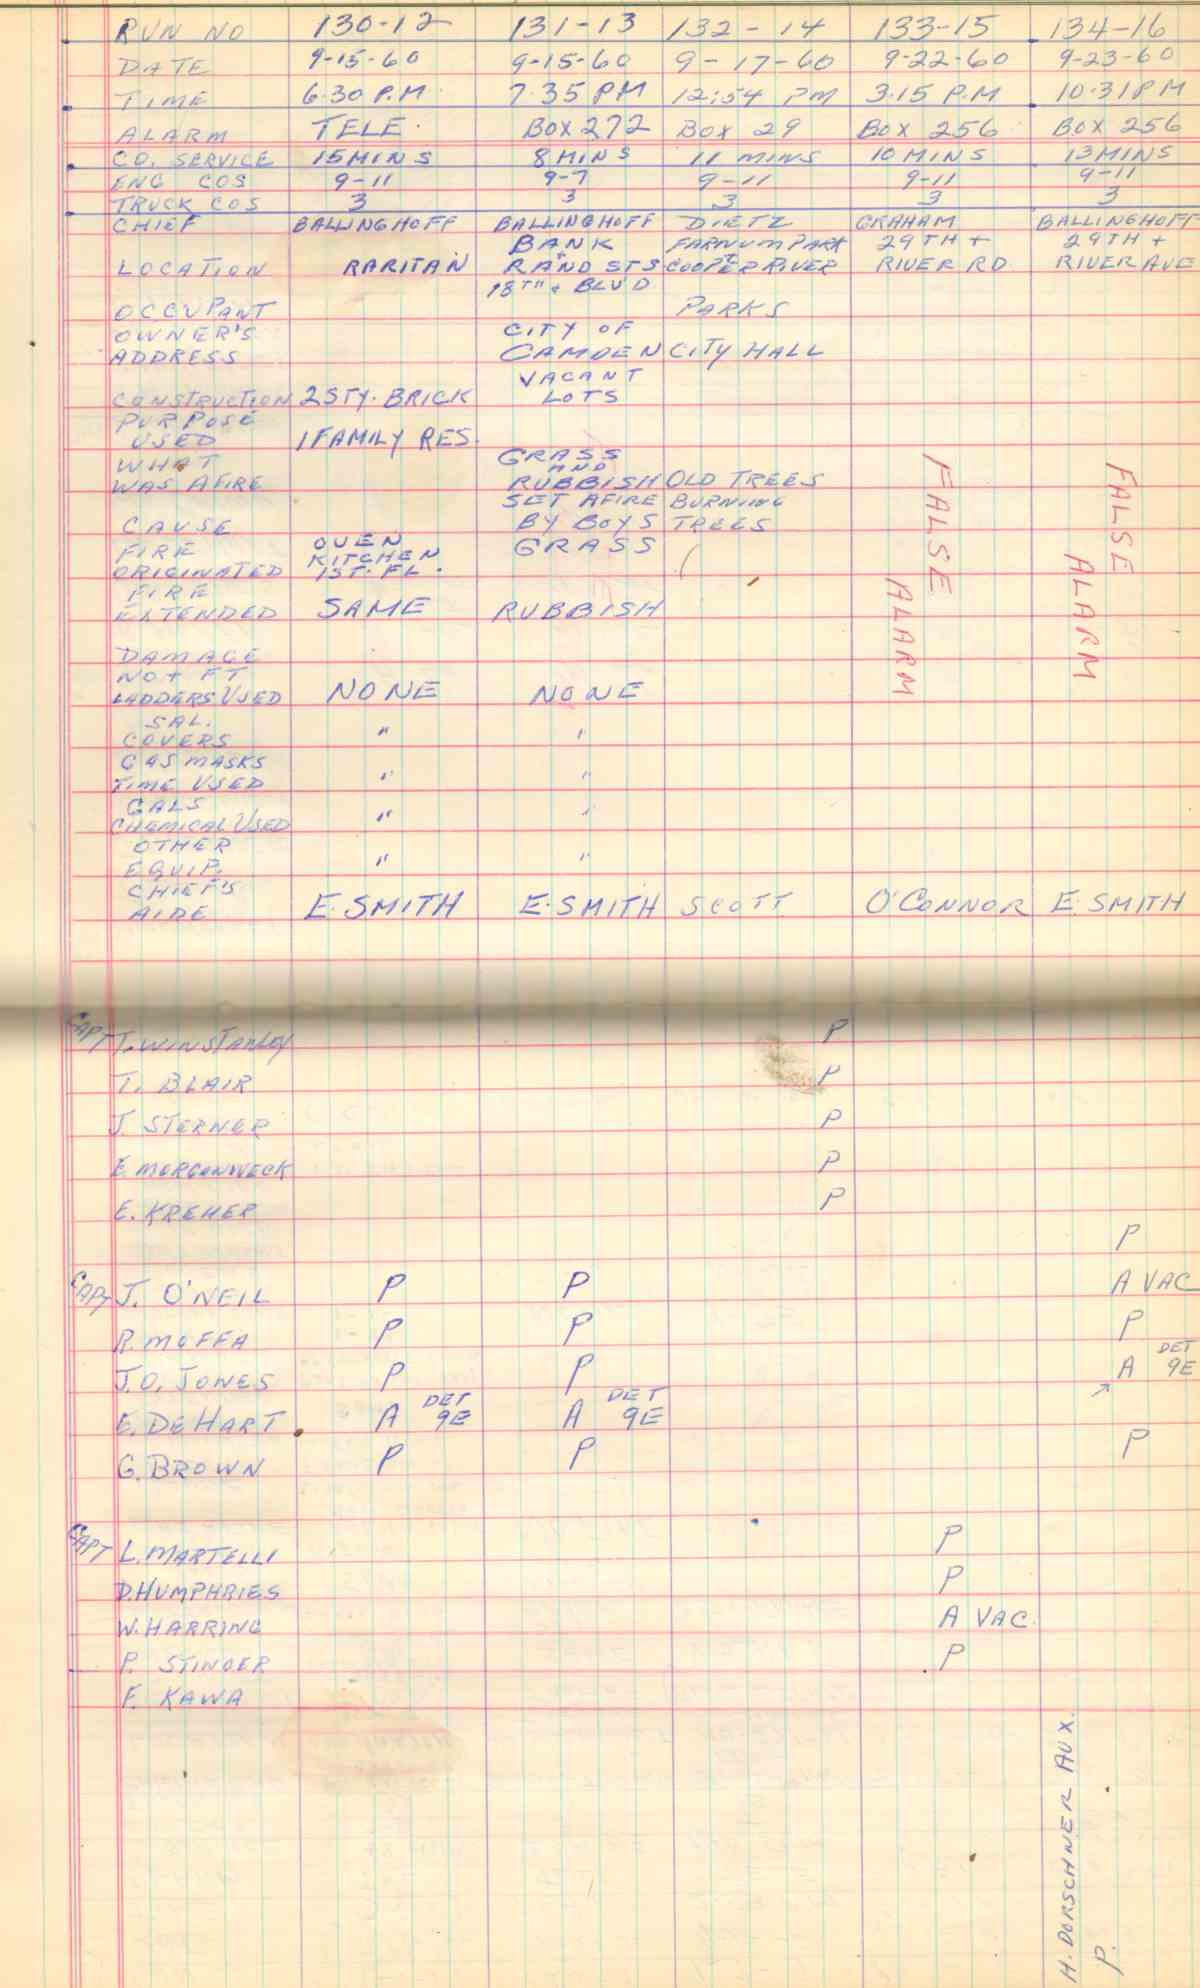 RUN NO 130-12 131-13 132-14 133-15 134-16
DATE 9-15-60 9-15-60 9-17-60 9-22-60 9-23-60
TIME 6.30 P.M. 7.35 PM 12:54 PM 3.15 P.M 10.31 PM
ALARM TELE. BOX 272 BOX 29 BOX 256 BOX 256
CO. SERVICE 15 MINS 8 MINS 11 MINS 10 MINS 13 MINS
ENG COS 9-11 9-7 9-11 9-11 9-11
TRUCK COS 3 3 3 3 3
CHIEF BALLINGHOFF BALLINGHOFF DIETZ GRAHAM BALLINGHOFF
BANK FARNUM PARK 29TH + 29TH +
LOCATION RARITAN + RAND STS COOPER RIVER RIVER RD RIVER AVE
18TH + BLV'D
OCCUPANT PARKS
OWNER'S CITY OF
ADDRESS CAMDEN CITY HALL
VACANT
CONSTRUCTION 2 STY. BRICK LOTS
PURPOSE
USED 1 FAMILY RES.
WHAT GRASS
AND
WAS AFIRE RUBBISH OLD TREES
SET AFIRE BURNING
CAUSE BY BOYS TREES
FIRE OVEN GRASS
KITCHEN
ORIGINATED 1ST. FL.
FIRE
EXTENDED SAME RUBBISH
FALSE ALARM
FALSE ALARM
DAMAGE
NO + FT
LADDERS USED NONE NONE
SAL.
COVERS " "
GAS MASKS
TIME USED " "
GALS
CHEMICAL USED " "
OTHER
EQUIP. " "
CHIEF'S
AIDE E. SMITH E. SMITH SCOTT O'CONNOR E. SMITH
CAPT T. WINSTANLEY P
T. BLAIR P
J. STERNER P
E. MORGENWECK P
E. KREHER P
P
CAPT J. O'NEIL P P A VAC
R. MOFFA P P P
DET
J. O. JONES P P A 9E
DET DET
E. DEHART A 9E A 9E
G. BROWN P P P
CAPT L. MARTELLI P
D. HUMPHRIES P
W. HARRING A VAC.
P. STINGER P
F. KAWA
H. DORSCHNER AUX.
P.